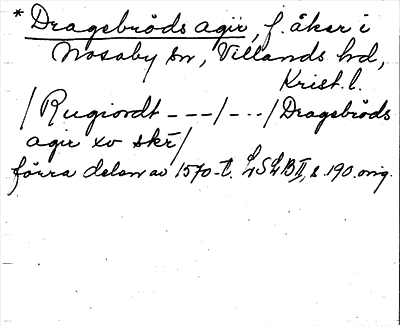 * Dragsbröds agir, f. åker i
Nosaby sn, Villands hd,
Krist. l.
/Rugiordt ---/-../Dragsbröds
agir xv skr/
förra delen av 1570-t. LSLB II, s. 190. orig.